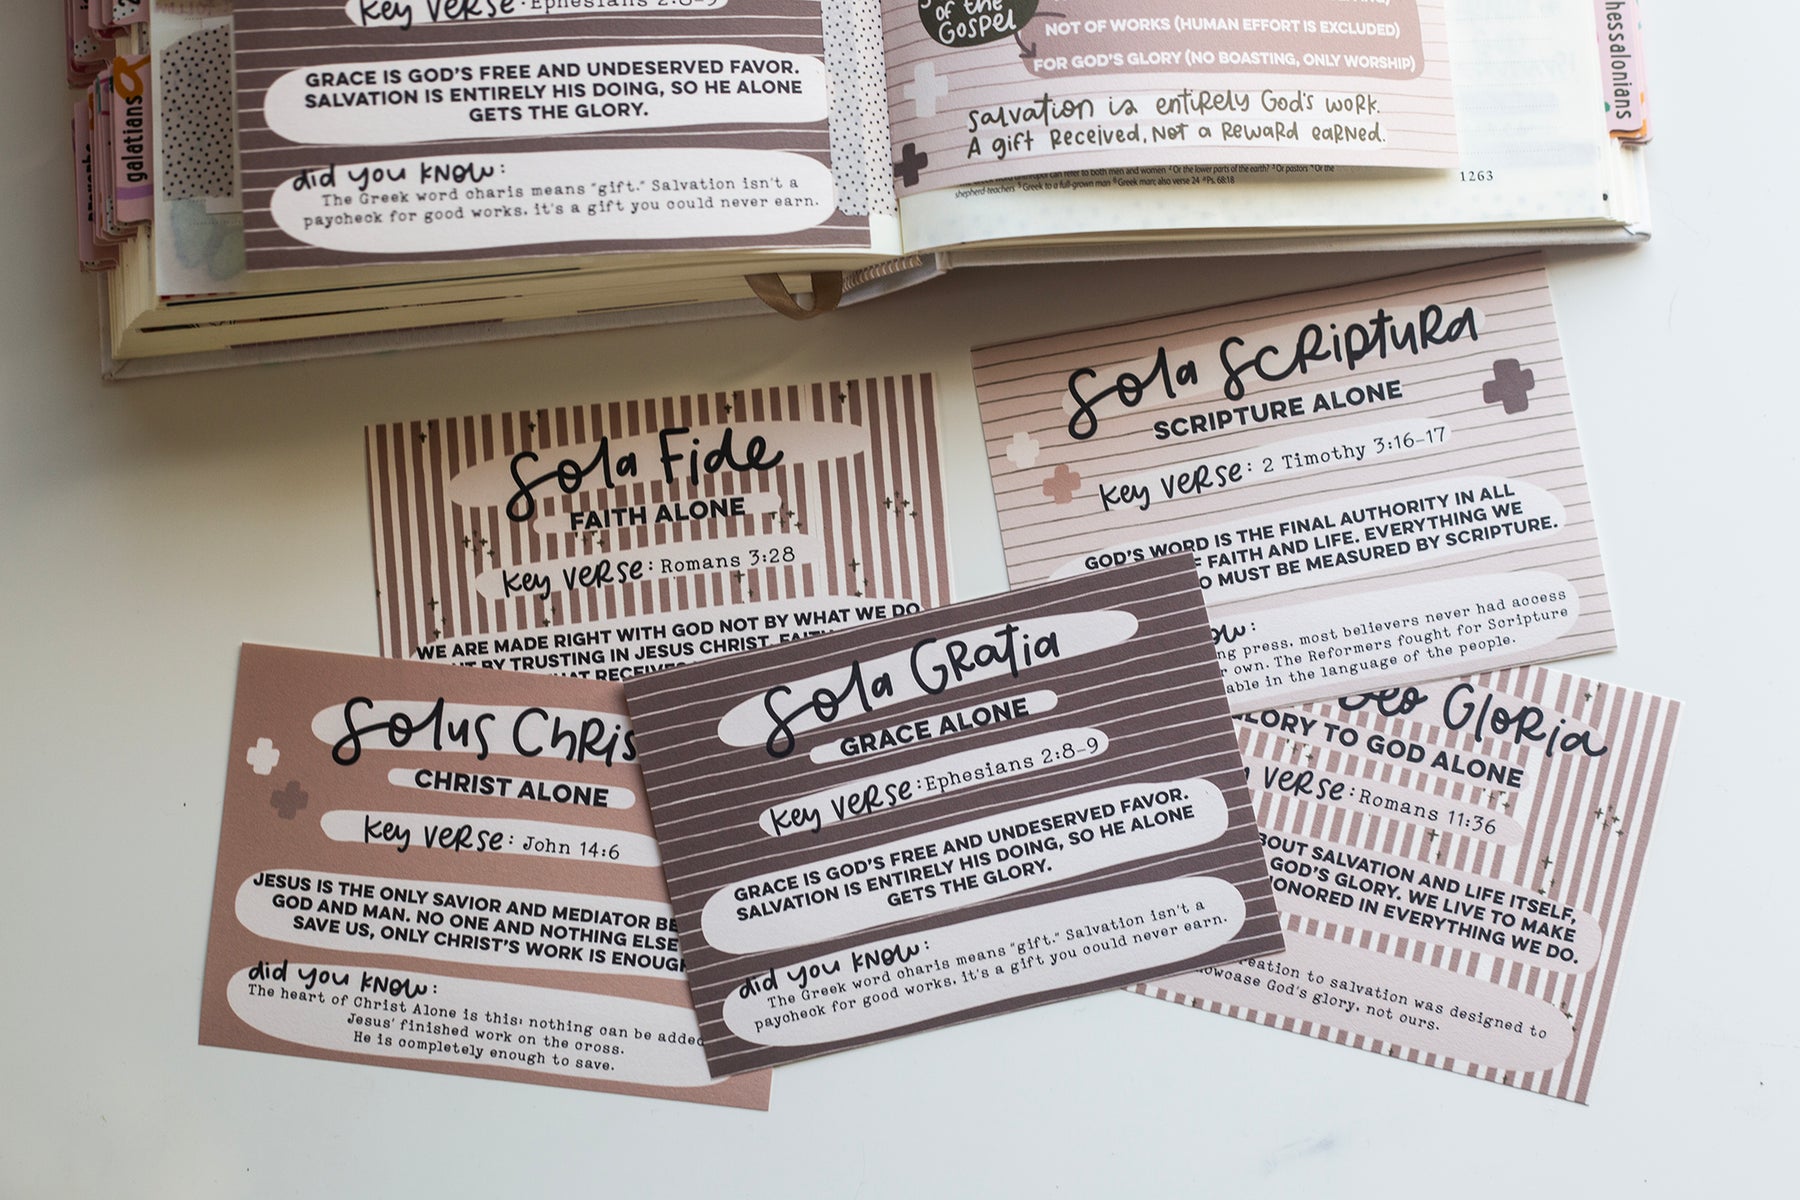 Key Verse: Ephesians 2:8-9
GRACE IS GOD'S FREE AND UNDESERVED FAVOR.
SALVATION IS ENTIRELY HIS DOING, SO HE ALONE
GETS THE GLORY.
did you know:
The Greek word charis means "gift." Salvation isn't a
paycheck for good works, it's a gift you could never earn.
galatians
of the
Gospel
NOT OF WORKS (HUMAN EFFORT IS EXCLUDED)
FOR GOD'S GLORY (NO BOASTING, ONLY WORSHIP)
Salvation is entirely God's work.
A gift received, not a reward earned.
can refer to both men and women 2 Or the lower parts of the earth? 3 Or pastors 4 Or the
shepherd-teachers 5 Greek to a full-grown man 6 Greek man; also verse 24 Ps. 68:18
1263
hessalonians
Sola Fide
FAITH ALONE
Key Verse: Romans 3:28
WE ARE MADE RIGHT WITH GOD NOT BY WHAT WE DO
BY TRUSTING IN JESUS CHRIST.
Sola Scriptura
SCRIPTURE ALONE
Key Verse: 2 Timothy 3:16-17
GOD'S WORD IS THE FINAL AUTHORITY IN ALL
FAITH AND LIFE. EVERYTHING WE
MUST BE MEASURED BY SCRIPTURE.
ow:
ng press, most believers never had access
own. The Reformers fought for Scripture
able in the language of the people.
Solus Chris
CHRIST ALONE
Key Verse: John 14:6
JESUS IS THE ONLY SAVIOR AND MEDIATOR BE
GOD AND MAN. NO ONE AND NOTHING ELSE
SAVE US, ONLY CHRIST'S WORK IS ENOUGH
did you know:
The heart of Christ Alone is this: nothing can be added
Jesus' finished work on the cross.
He is completely enough to save.
Sola Gratia
GRACE ALONE
Key Verse: Ephesians 2:8-9
GRACE IS GOD'S FREE AND UNDESERVED FAVOR.
SALVATION IS ENTIRELY HIS DOING, SO HE ALONE
GETS THE GLORY.
did you know:
The Greek word charis means "gift." Salvation isn't a
paycheck for good works, it's a gift you could never earn.
Deo Gloria
GLORY TO GOD ALONE
Verse: Romans 11:36
BOUT SALVATION AND LIFE ITSELF,
GOD'S GLORY. WE LIVE TO MAKE
HONORED IN EVERYTHING WE DO.
reation to salvation was designed to
howcase God's glory, not ours.